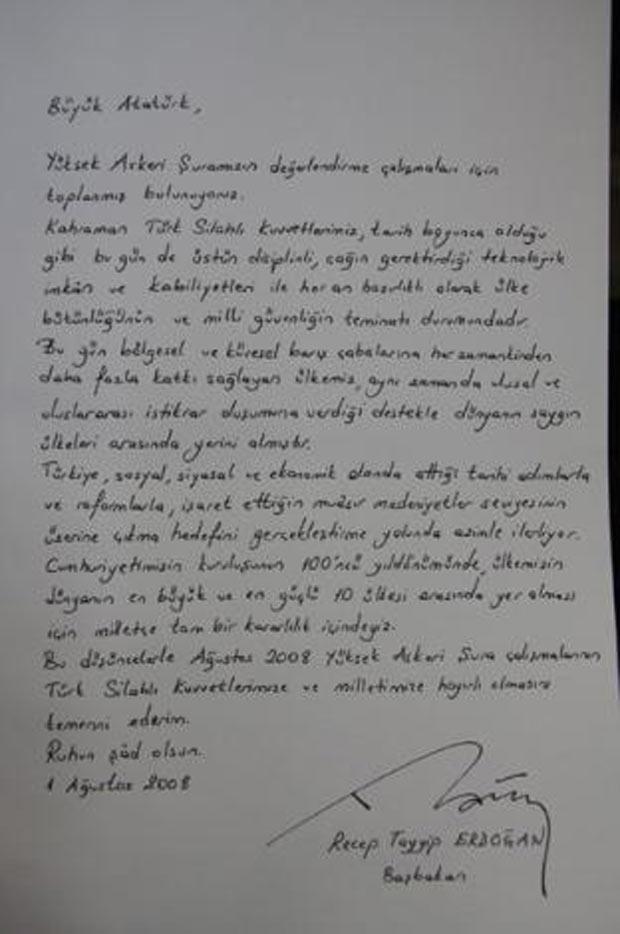 Büyük Atatürk,
Yüksek Askeri Şuramızın değerlendirme çalışmaları için
toplanmış bulunuyoruz.
Kahraman Türk Silahlı Kuvvetlerimiz, tarih boyunca olduğu
gibi bu gün de üstün disiplinli, çağın gerektirdiği teknolojik
imkân ve kabiliyetleri ile her an hazırlıklı olarak ülke
bütünlüğünün ve milli güvenliğin teminatı durumundadır.
Bu gün bölgesel ve küresel barış çabalarına her zamankinden
daha fazla katkı sağlayan ülkemiz, aynı zamanda ulusal ve
uluslararası istikrar oluşumuna verdiği destekle dünyanın saygın
ülkeleri arasında yerini almıştır.
Türkiye, sosyal, siyasal ve ekonomik alanda attığı tarihi adımlarla
ve reformlarla, işaret ettiğin muasır medeniyetler seviyesinin
üzerine çıkma hedefini gerçekleştirme yolunda azimle ilerliyor.
Cumhuriyetimizin kuruluşunun 100'ncü yıldönümünde, ülkemizin
dünyanın en büyük ve en güçlü 10 ülkesi arasında yer alması
için milletçe tam bir kararlılık içindeyiz.
Bu düşüncelerle Ağustos 2008 Yüksek Askeri Şura çalışmalarının
Türk Silahlı Kuvvetlerimize ve milletimize hayırlı olmasını
temenni ederim.
Ruhun şâd olsun.
1 Ağustos 2008
Recep Tayyip ERDOĞAN
Başbakan